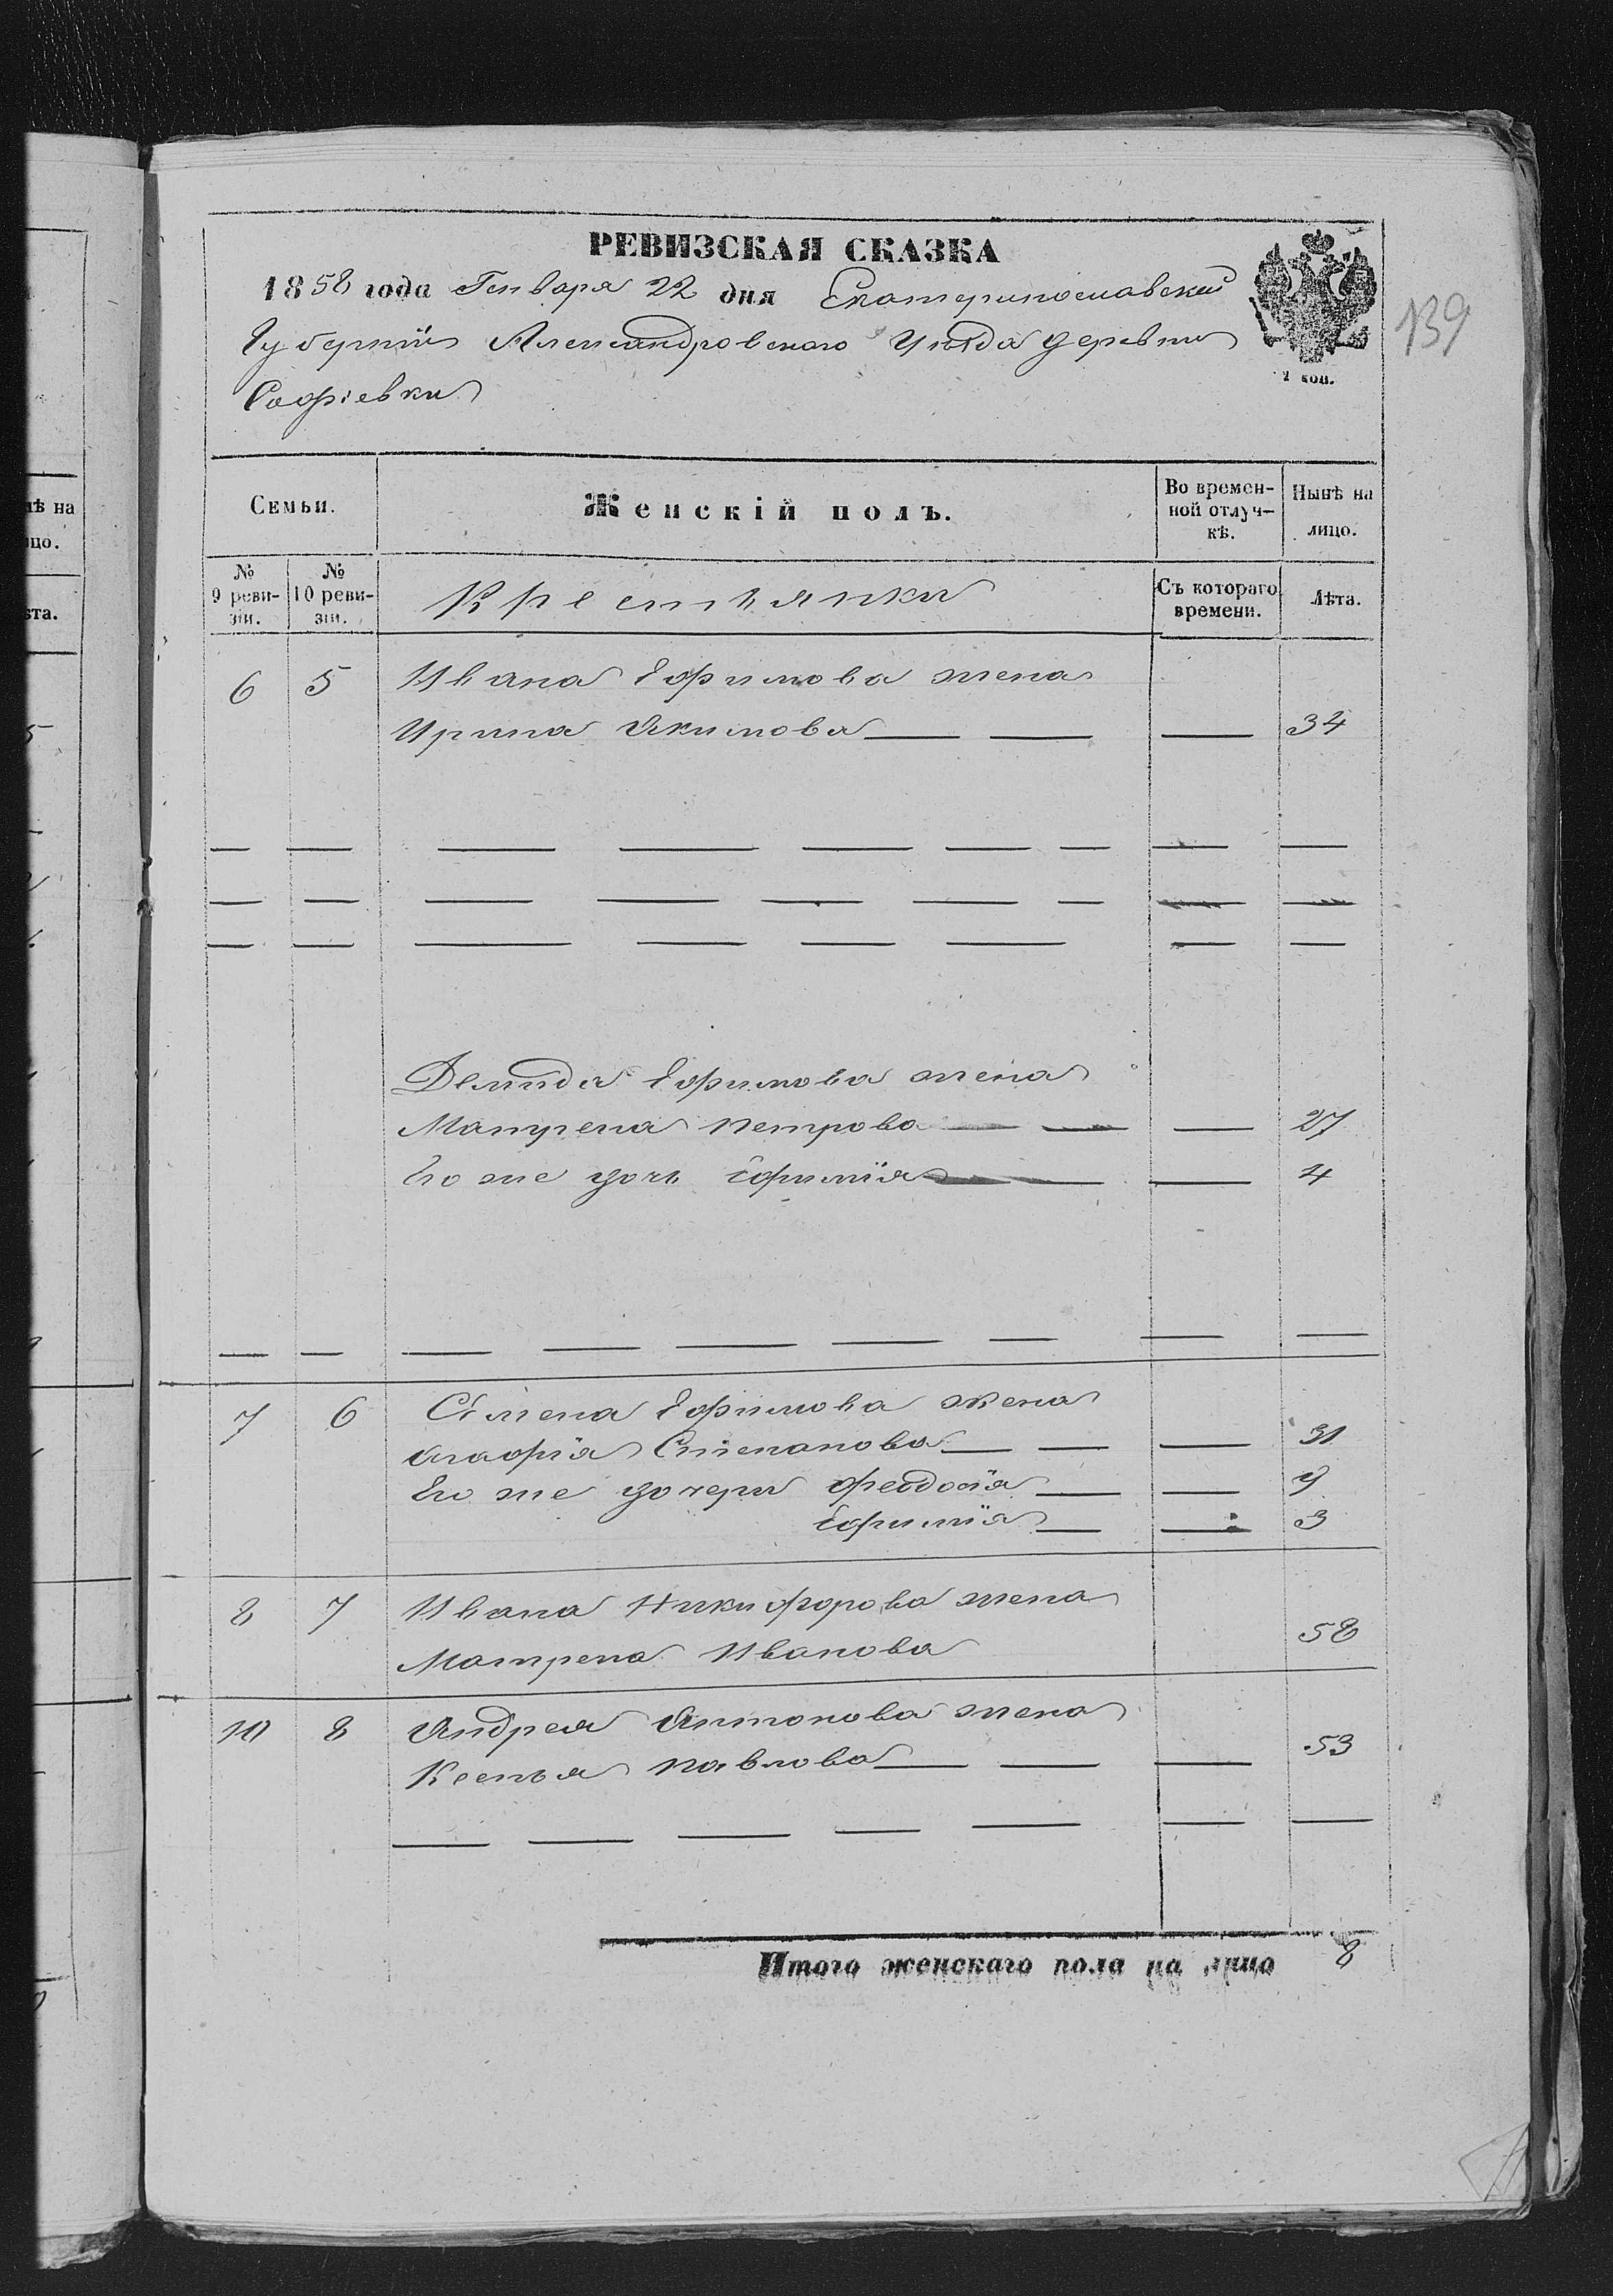 РЕВИЗСКАЯ СКАЗКА
1858 года Генваря 22 дня Екатеринославской
Губернiи Александровского Уѣзда деревни
Софiевки
2 коп.
139
Семьи.
Женскiй полъ.
Во времен-
ной отлуч-
кѣ.
Нынѣ на
лицо.
№
9 реви-
зiи.
№
10 реви-
зiи.
Крестьянки
Съ котораго
времени.
Лѣта.
6 5 Ивана Ефимова жена
Ирина Якимова 34
Демида Ефимова жена
Матрена Петрова 27
Его же дочь Ефимiя 4
7 6 Семена Ефимова жена
Агафiя Степанова 31
Его же дочери Феодосiя 9
Ефимiя 3
8 7 Ивана Никифорова жена
Матрена Иванова 58
10 8 Андрея Антонова жена
Ксенья Павлова 53
Итого женскаго пола на лицо 8
нѣ на
ицо.
ѣта.